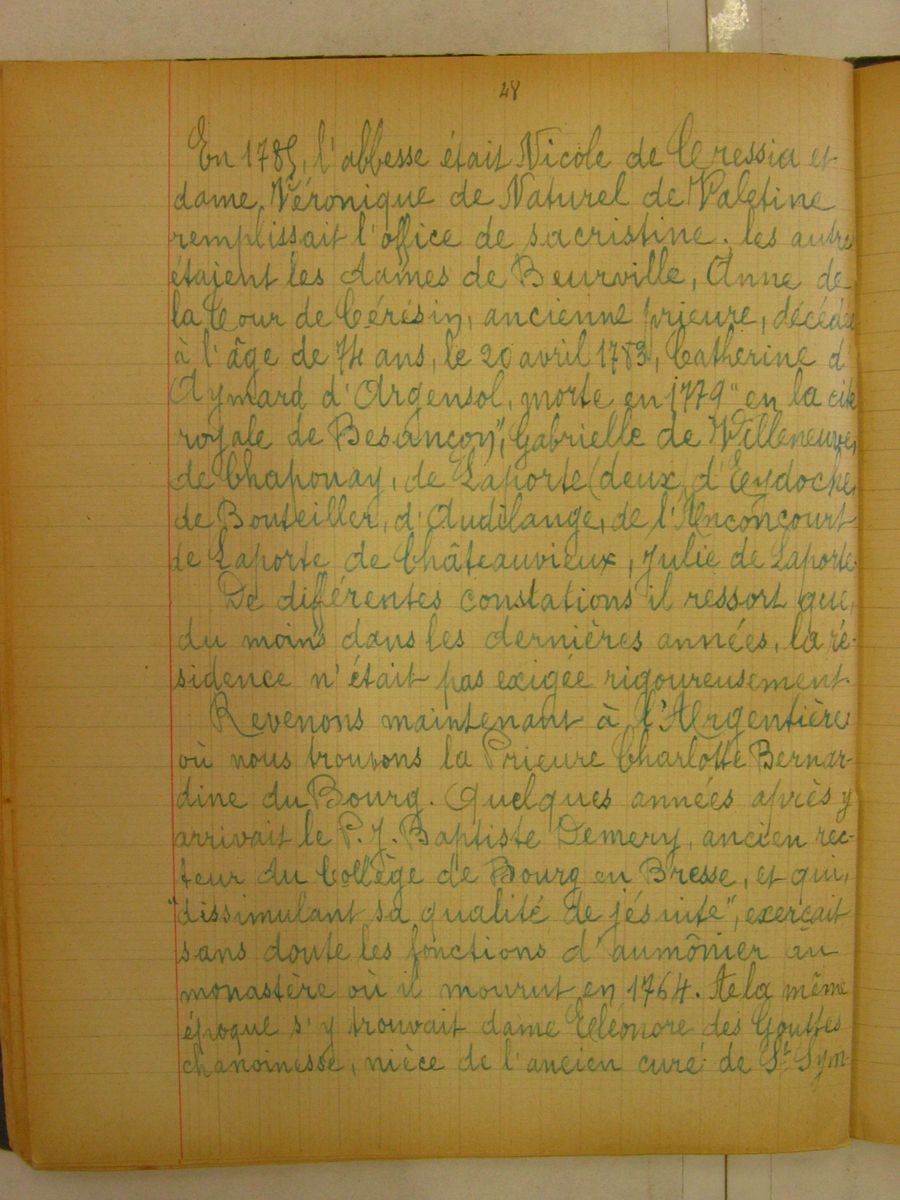 28
En 1785, l'abbesse était Nicole de Cressia et
dame Véronique de Naturel de Valetine
remplissait l'office de sacristine. les autres
étaient les dames de Beurville, Anne de
la Cour de Cérésin, ancienne prieure, décédée
à l'âge de 74 ans, le 20 avril 1783, Catherine d'
Aymard d'Argensol, morte en 1779 "en la cité
royale de Besançon", Gabrielle de Villeneuve,
de Chaponay, de Laporte (deux) d'Eydoche,
de Bouteiller, d'Audelange, de l'Anconcourt
de Laporte de Châteauvieux, Julie de Laporte
De différentes constations il ressort que,
du moins dans les dernières années, la ré-
sidence n'était pas exigée rigoureusement
Revenons maintenant à l'Argentière
où nous trouvons la Prieure Charlotte Bernar-
dine du Bourg. Quelques années après y
arrivait le P. J. Baptiste Demery, ancien rec-
teur du Collège de Bourg en Bresse, et qui,
"dissimulant sa qualité de jésuite", exerçait
sans doute les fonctions d'aumônier au
monastère où il mourut en 1764. A la même
époque s'y trouvait dame Eléonore des Gouttes
chanoinesse, nièce de l'ancien curé de St Sym-